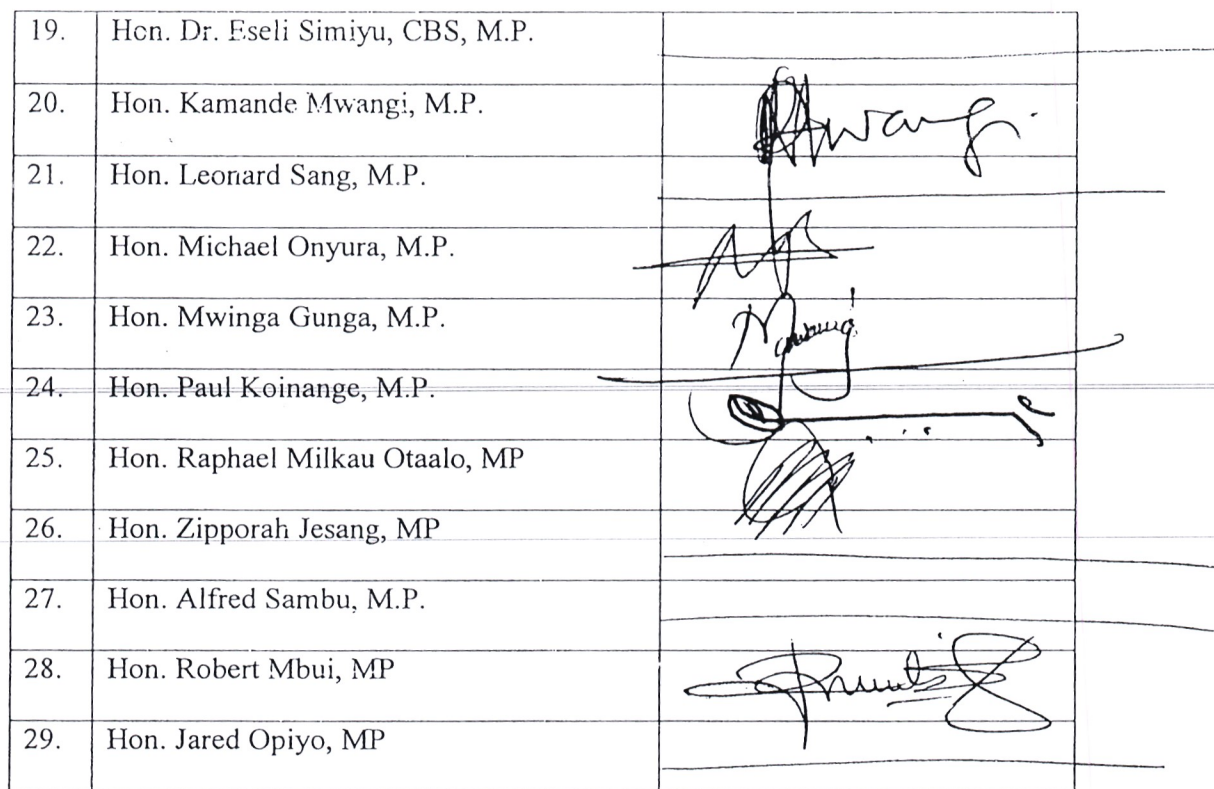 19. Hon. Dr. Eseli Simiyu, CBS, M.P.
20. Hon. Kamande Mwangi, M.P.
21. Hon. Leonard Sang, M.P.
22. Hon. Michael Onyura, M.P.
23. Hon. Mwinga Gunga, M.P.
24. Hon. Paul Koinange, M.P.
25. Hon. Raphael Milkau Otaalo, MP
26. Hon. Zipporah Jesang, MP
27. Hon. Alfred Sambu, M.P.
28. Hon. Robert Mbui, MP
29. Hon. Jared Opiyo, MP